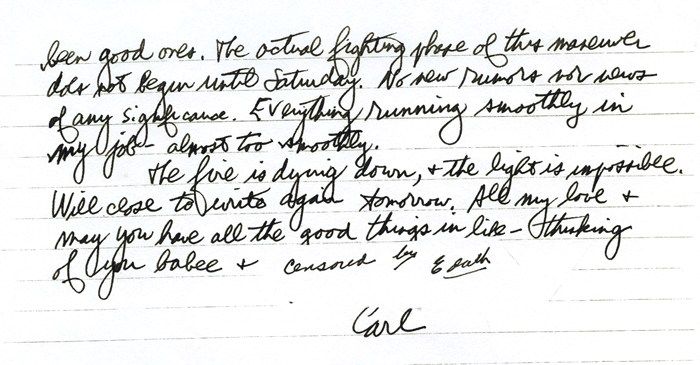 been good ones. The actual fighting phase of this maneuver
does not begin until Saturday. No new rumors nor news
of any significance. Everything running smoothly in
my job - almost too smoothly.
The fire is dying down, + the light is impossible.
Will close to write again tomorrow. All my love +
may you have all the good things in life - thinking
of you babee + censored by
Carl